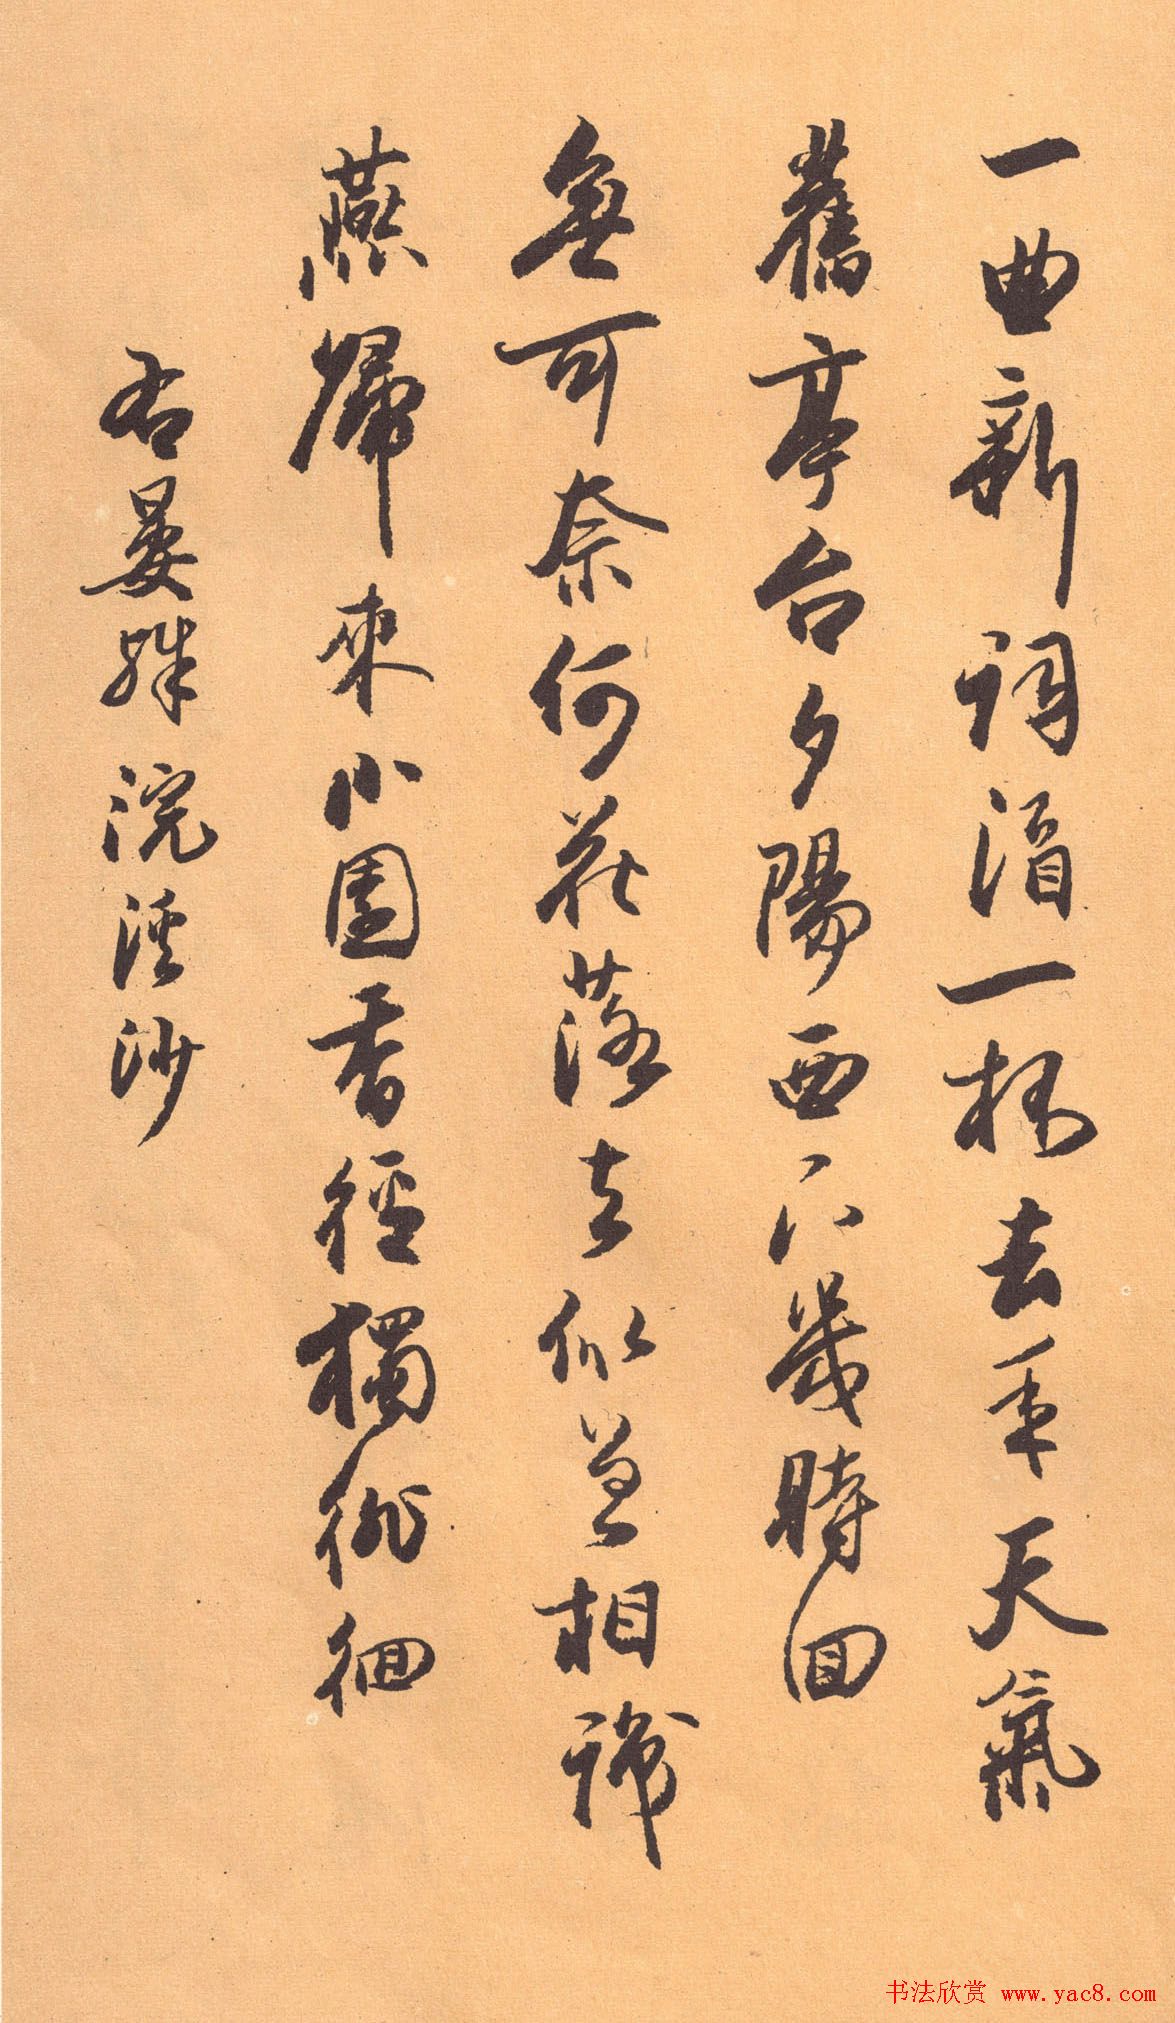 一曲新詞酒一杯去年天氣
舊亭台夕陽西下幾時回
無可奈何花落去似曾相識
燕歸來小園香徑獨徘徊
右晏殊浣溪沙
书法欣赏 www.yac8.com